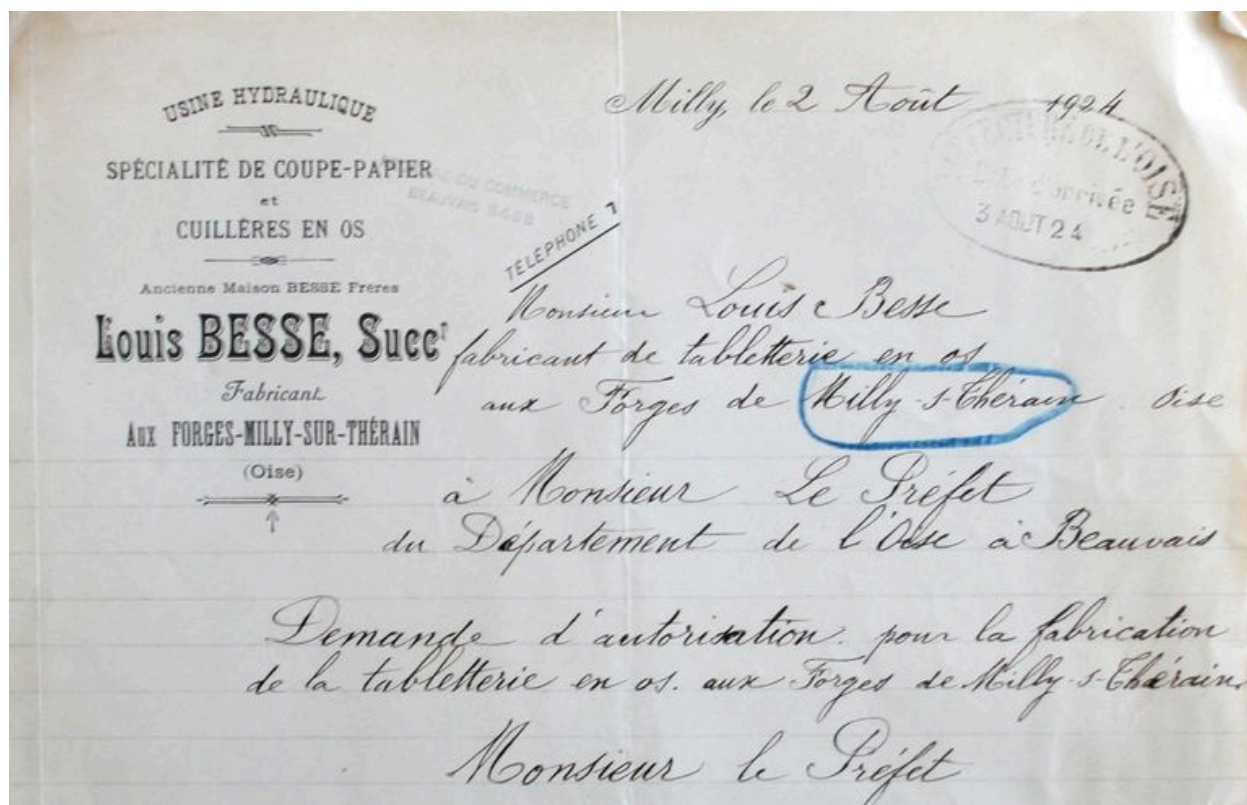 USINE HYDRAULIQUE
SPÉCIALITÉ DE COUPE-PAPIER
et
CUILLÈRES EN OS
Ancienne Maison BESSE Frères
Louis BESSE, Succr
Fabricant
AUX FORGES-MILLY-SUR-THÉRAIN
(Oise)
DU COMMERCE
BEAUVAIS
TÉLÉPHONE 7
Milly, le 2 Août 1924
DE L'OISE
d'arrivée
3 AOUT 24
Monsieur Louis Besse
fabricant de tabletterie en os
aux Forges de Milly-s-Thérain Oise
à Monsieur Le Préfet
du Département de l'Oise à Beauvais
Demande d'autorisation pour la fabrication
de la tabletterie en os. aux Forges de Milly-s-Thérain.
Monsieur le Préfet